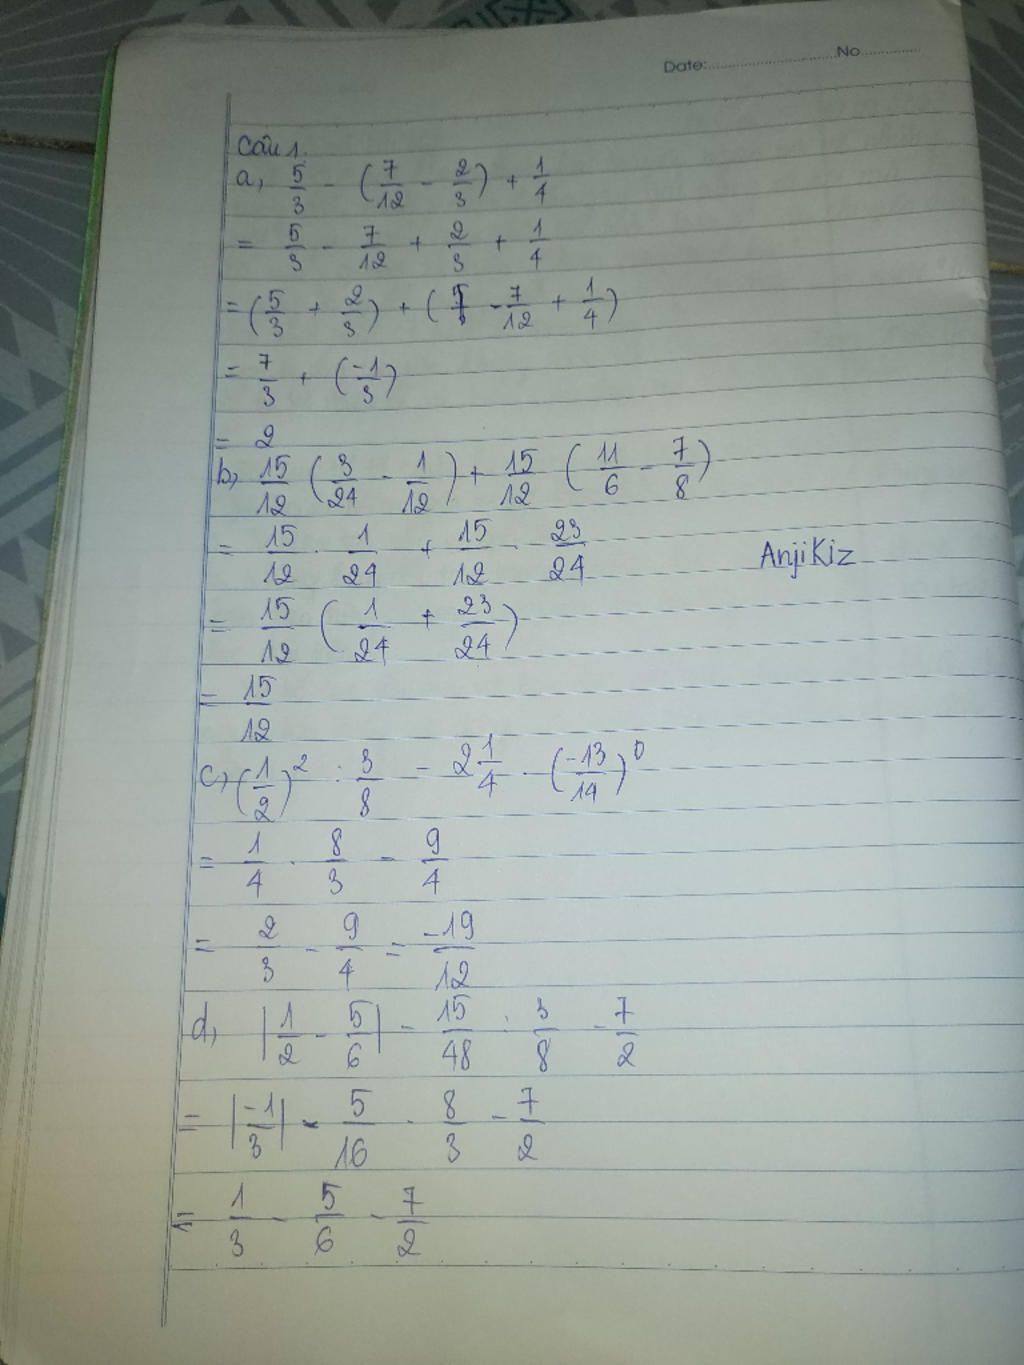 Date: No
Câu 1.
a, 5/3 - (7/12 - 2/3) + 1/4
= 5/3 - 7/12 + 2/3 + 1/4
= (5/3 + 2/3) + ( -7/12 + 1/4)
= 7/3 + (-1/3)
= 2
b, 15/12 (3/24 - 1/12) + 15/12 (11/6 - 7/8)
= 15/12 . 1/24 + 15/12 . 23/24
AnjiKiz
= 15/12 (1/24 + 23/24)
= 15/12
c, (1/2)^2 : 3/8 - 2 1/4 . (-13/14)^0
= 1/4 . 8/3 - 9/4
= 2/3 - 9/4 = -19/12
d, |1/2 - 5/6| - 15/48 : 3/8 - 7/2
= |-1/3| - 5/16 . 8/3 - 7/2
= 1/3 - 5/6 - 7/2